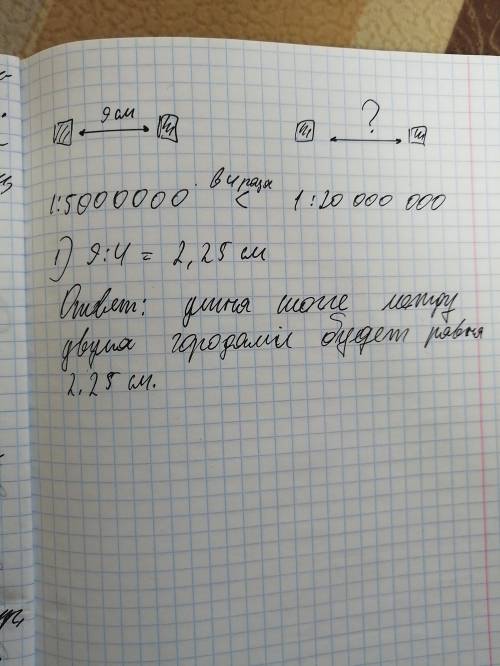 9 см ?
1:5000000 в 4 раза < 1:20 000 000
1) 9:4 = 2,25 см
Ответ: длина между
двумя городами будет равна
2,25 см.